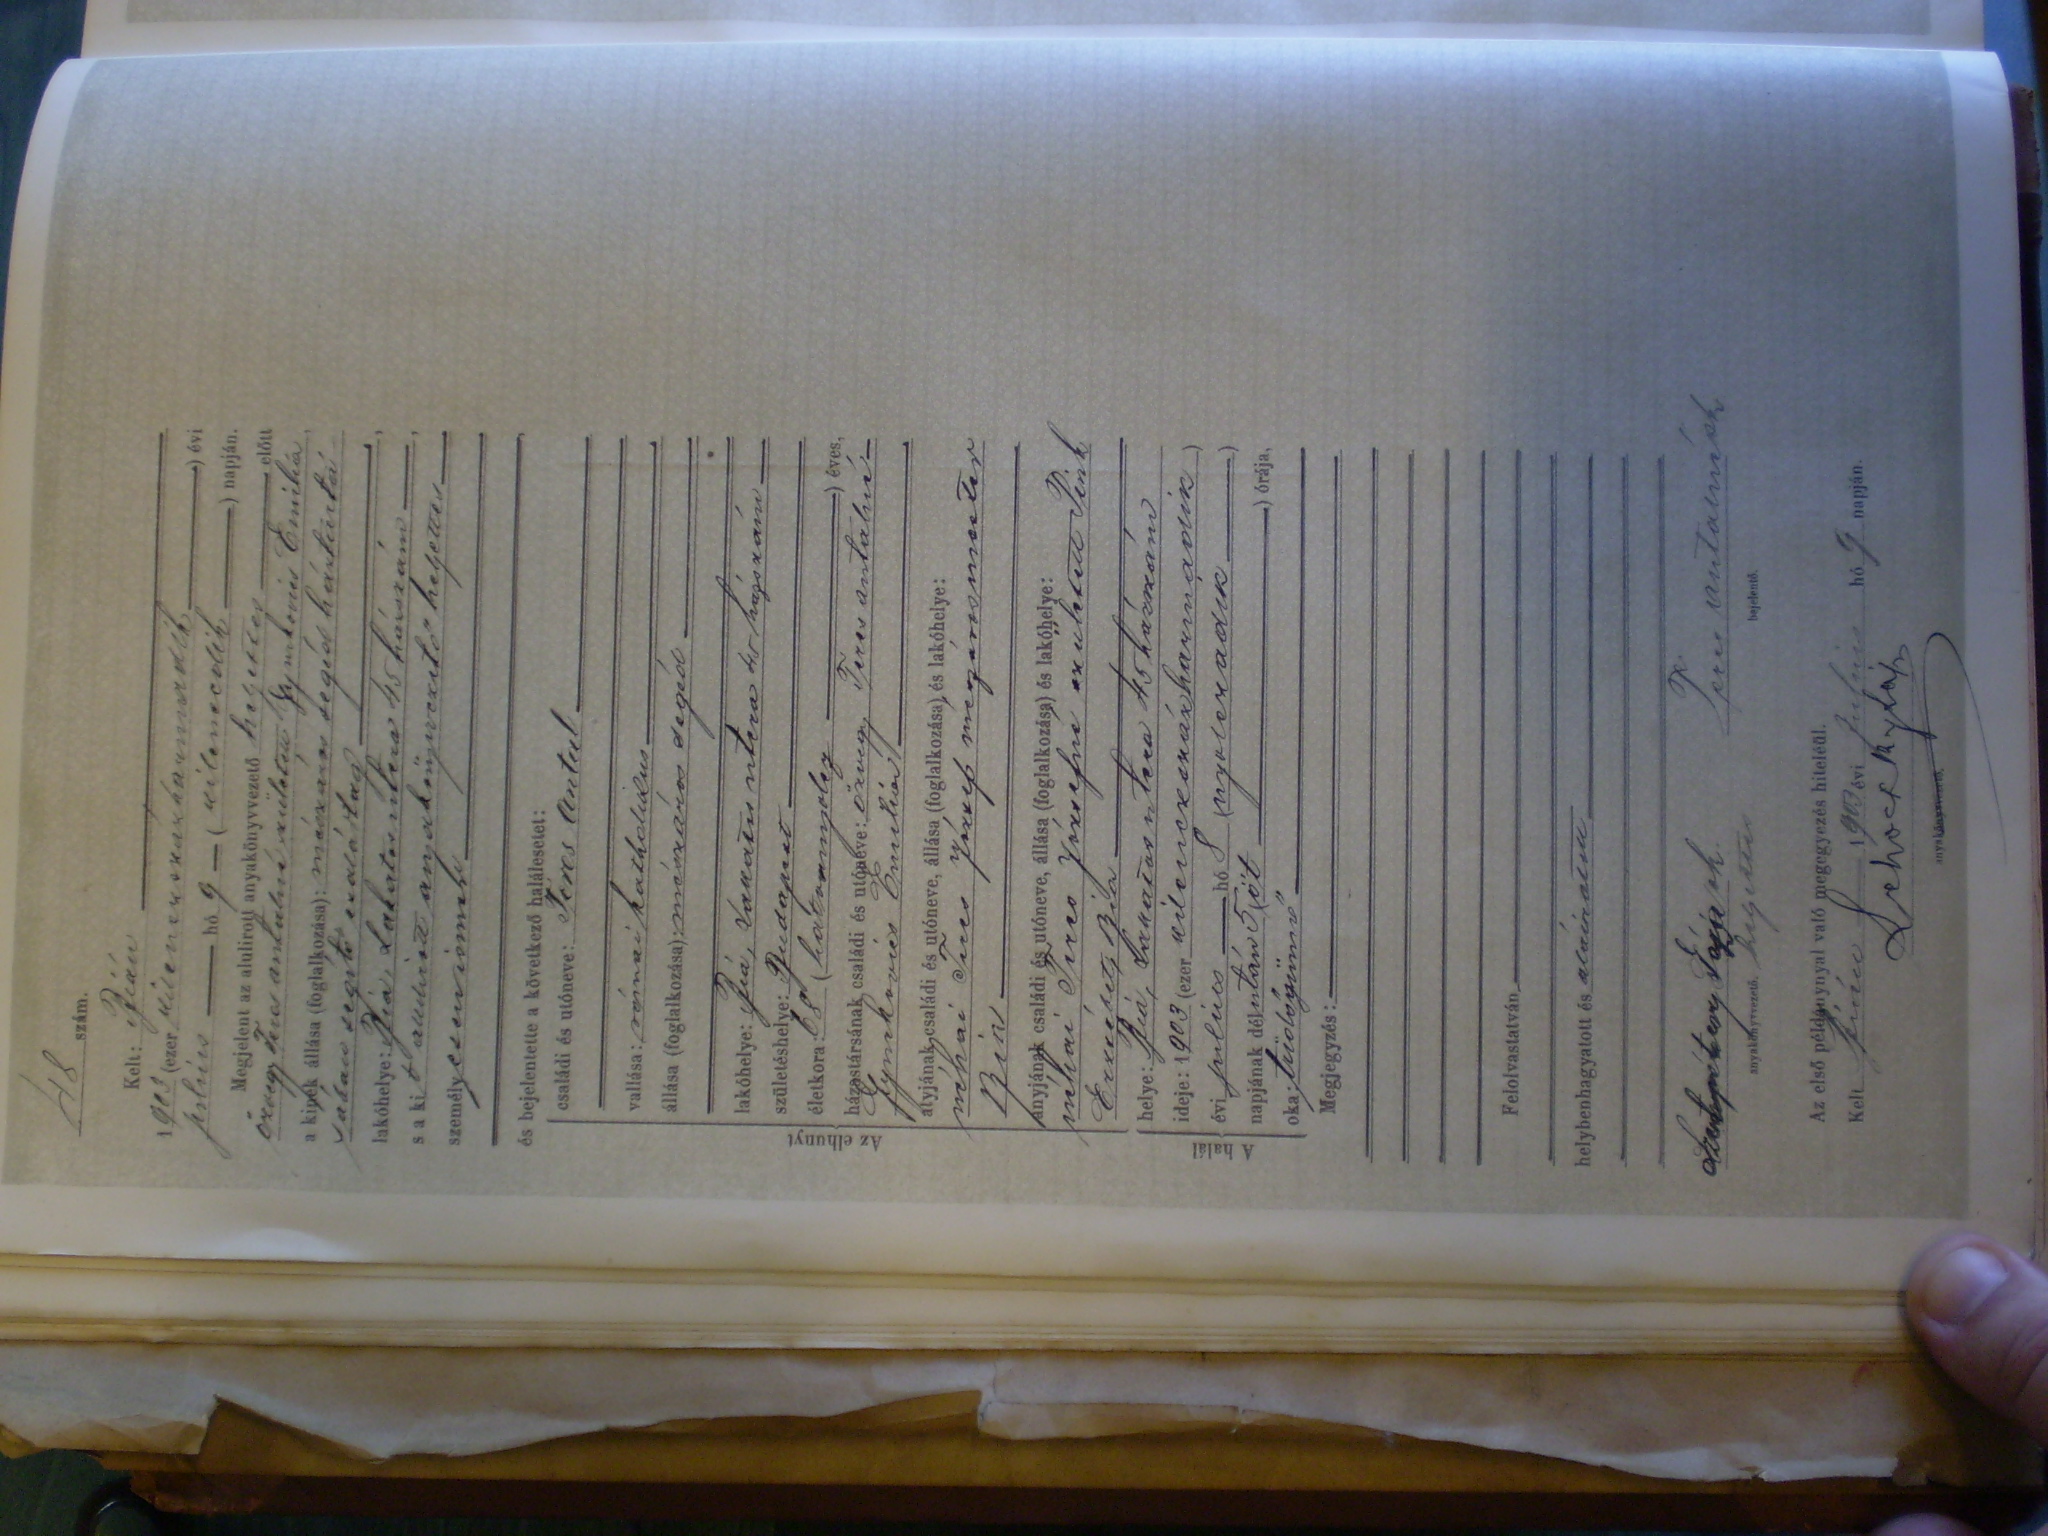 48 szám.
Kelt: Bián
1903 (ezer kilencszázharmadik) évi
julius hó 9 (kilencedik) napján.
Megjelent az alulirott anyakönyvvezető helyettes előtt
özvegy Teres Antalné született Gyurkovics Emilia
a kinek állása (foglalkozása): mészáros segéd háztartá
lakóhelye: Bia Lakatos utca 45 házszám,
s a ki t alulirott anyakönyvvezető helyettes
személyesen ismer,
és bejelentette a következő halálesetet:
Az elhunyt
családi és utóneve: Teres Antal
vallása: római katholikus
állása (foglalkozása): mészáros segéd
lakóhelye: Bia, Lakatos utca 45 házszám
születéshelye: Budapest
életkora: 68 (hatvannyolcz) éves,
házastársának családi és utóneve: özvegy Teres Antalné
Gyurkovics Emilia
atyjának családi és utóneve, állása (foglalkozása) és lakóhelye:
néhai Teres József mészárosmester
anyjának családi és utóneve, állása (foglalkozása) és lakóhelye:
néhai Teres Józsefné született Pink
Erzsébet, Bia
A halál
helye: Bia, Lakatos utca 45 házszám
ideje: 1903 (ezer kilencszázharmadik)
évi julius hó 8 (nyolczadik)
napjának délután 5 (öt) órája,
oka: tüdőgümő
Megjegyzés:
Felolvastatván,
helybenhagyatott és aláiratott
helyettes Teres Antalnéh
anyakönyvvezető. bejelentő.
Az első példánynyal való megegyezés hiteléül.
Kelt 1903 évi julius hó 9 napján.
anyakönyvvezető.